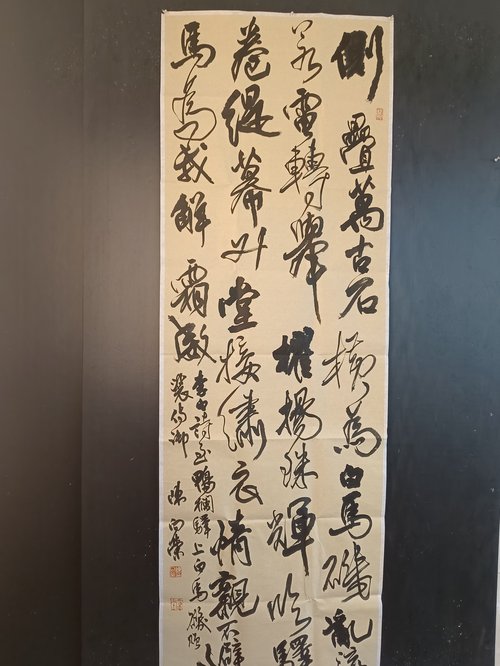 側疊萬古石橫為白馬磯亂流
若雷轉舉櫂揚珠輝臨驛
卷緹幕升堂接繡衣情親不避
馬為我解霜威
李白詩至鴨欄驛上白馬磯贈
裴侍御 陳